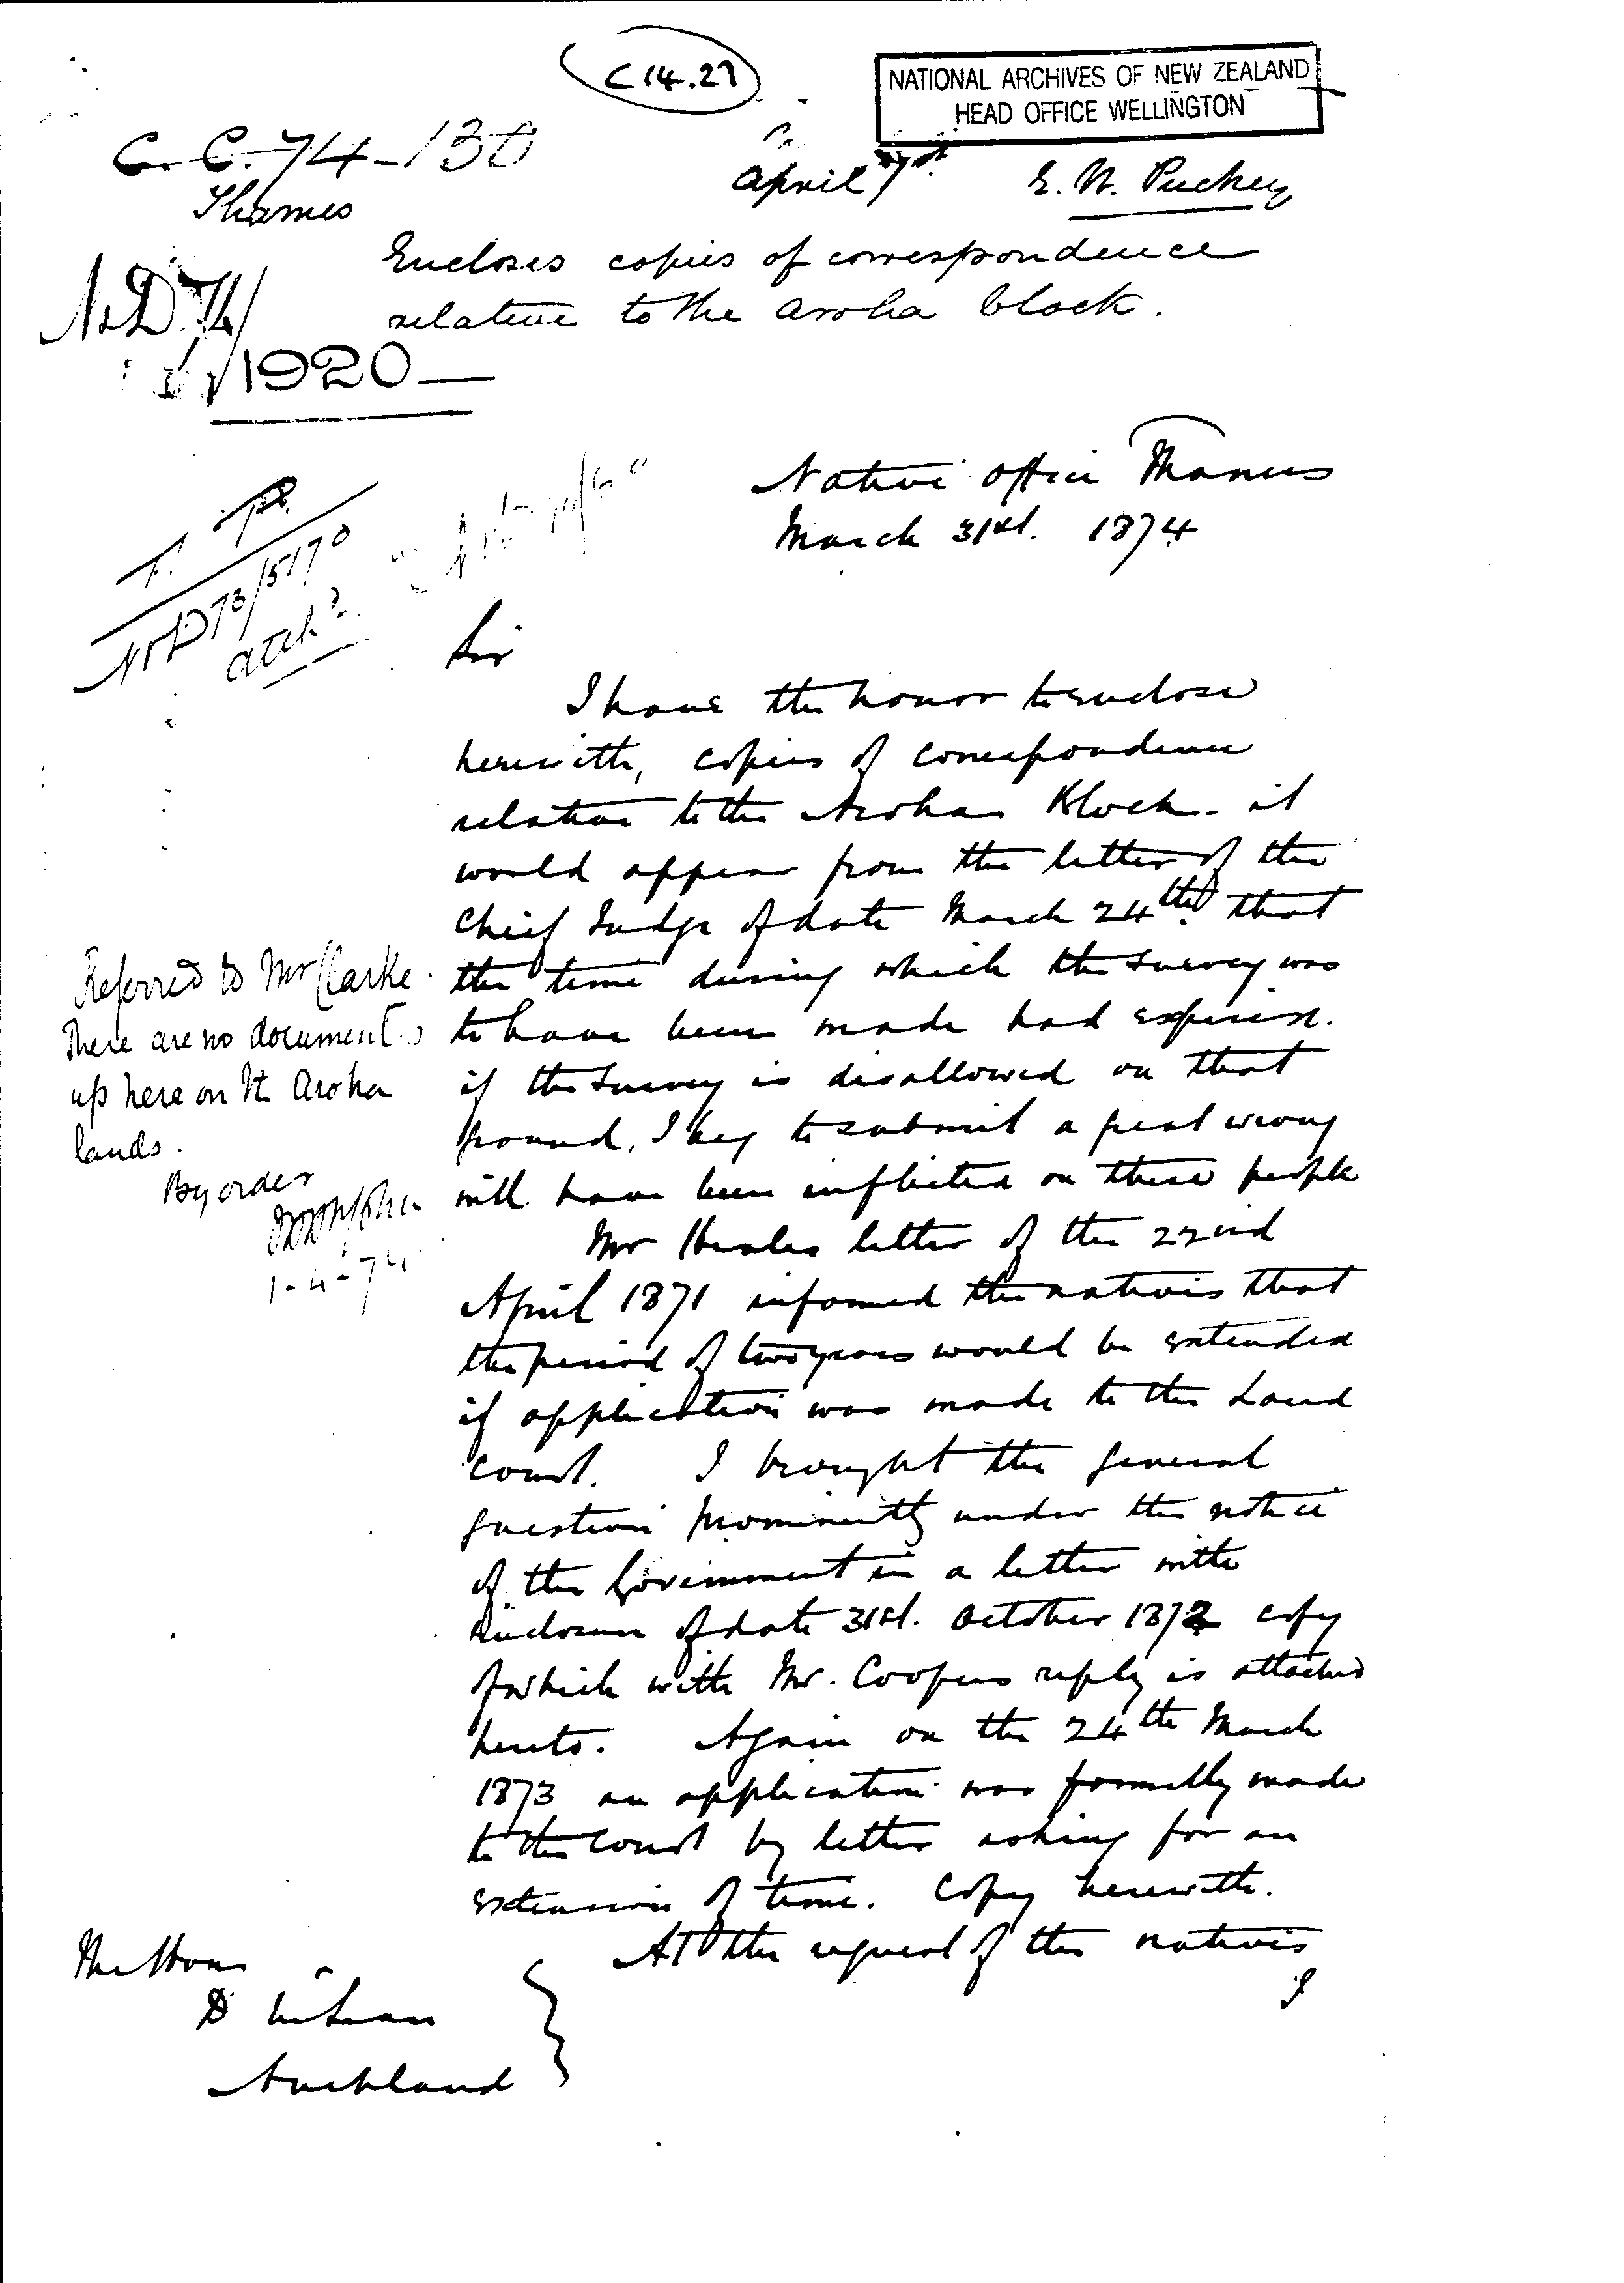 C 14.27
NATIONAL ARCHIVES OF NEW ZEALAND
HEAD OFFICE WELLINGTON
C. C. 74-130
April
E. W. Puckey
Thames
Encloses copies of correspondence
relative to the Aroha block.
N&D 74/
1920
Native Office Thames
March 31st. 1874
N&D 73/5170
attd
Sir
I have the honor to enclose
herewith, copies of correspondence
relative to the Aroha Block - it
would appear from the letter of the
Chief Judge of date March 24th that
the time during which the survey was
to have been made had expired.
if the survey is disallowed on that
ground, I beg to submit a great wrong
will have been inflicted on these people
Mr Heales letter of the 22nd
April 1871 informed the natives that
the period of two years would be extended
if application was made to the Land
Court. I brought the general
question prominently under the notice
of the Government in a letter with
Enclosure of date 31st. October 1872 copy
of which with Mr. Coopers reply is attached
hereto. Again on the 24th March
1873 an application was formally made
to the Court by letter asking for an
extension of time. Copy herewith.
At the request of the natives
I
Referred to Mr Clarke.
There are no documents
up here on the Aroha
lands.
By order
1-4-74
The Hon
D McLean
Auckland